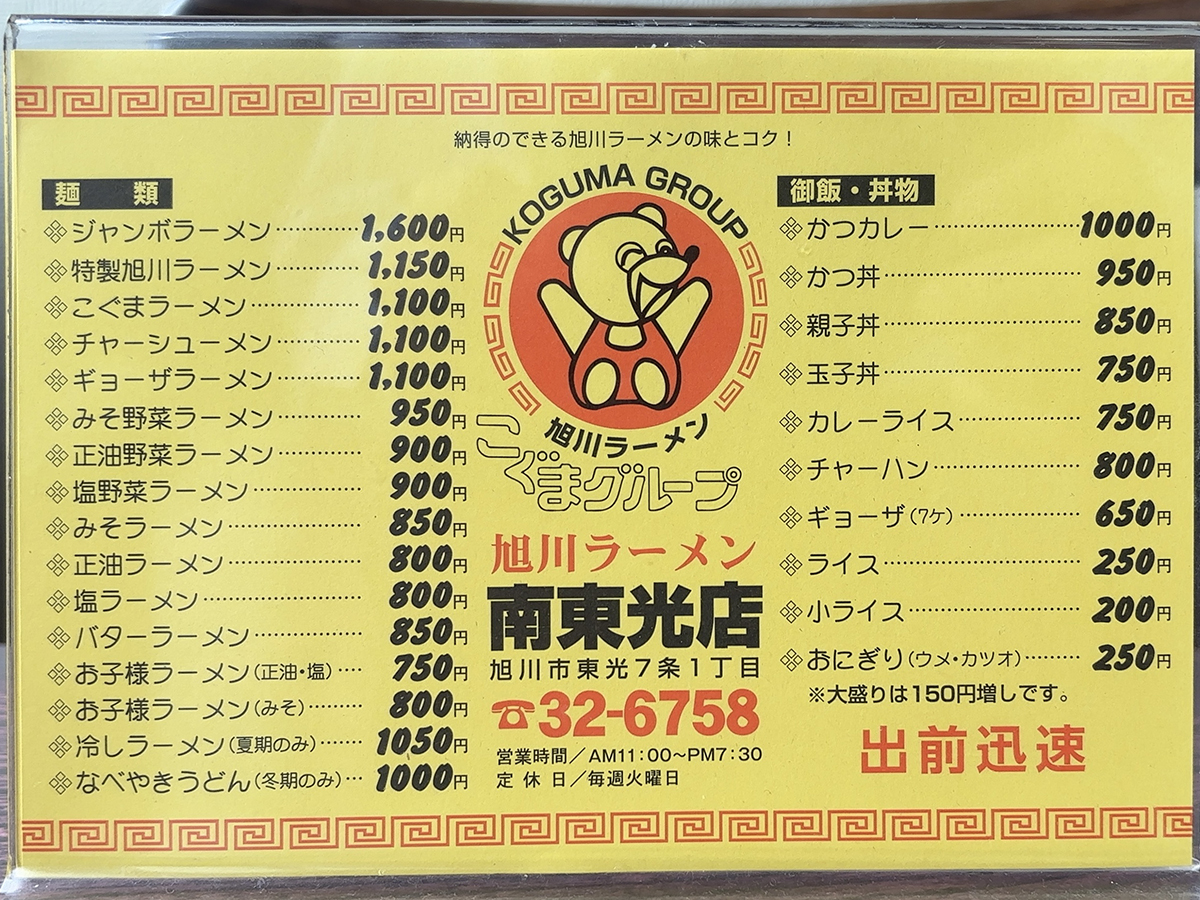 納得のできる旭川ラーメンの味とコク！
麺　類
ジャンボラーメン…………1,600円
特製旭川ラーメン…………1,150円
こぐまラーメン…………1,100円
チャーシューメン…………1,100円
ギョーザラーメン…………1,100円
みそ野菜ラーメン…………950円
正油野菜ラーメン…………900円
塩野菜ラーメン…………900円
みそラーメン…………850円
正油ラーメン…………800円
塩ラーメン…………800円
バターラーメン…………850円
お子様ラーメン(正油・塩)…750円
お子様ラーメン(みそ)……800円
冷しラーメン(夏期のみ)……1050円
なべやきうどん(冬期のみ)…1000円
KOGUMA GROUP
旭川ラーメン
こぐまグループ
旭川ラーメン
南東光店
旭川市東光7条1丁目
☎32-6758
営業時間／AM11:00〜PM7:30
定休日／毎週火曜日
御飯・丼物
かつカレー…………1000円
かつ丼…………950円
親子丼…………850円
玉子丼…………750円
カレーライス…………750円
チャーハン…………800円
ギョーザ(7ケ)…………650円
ライス…………250円
小ライス…………200円
おにぎり(ウメ・カツオ)………250円
※大盛りは150円増しです。
出前迅速